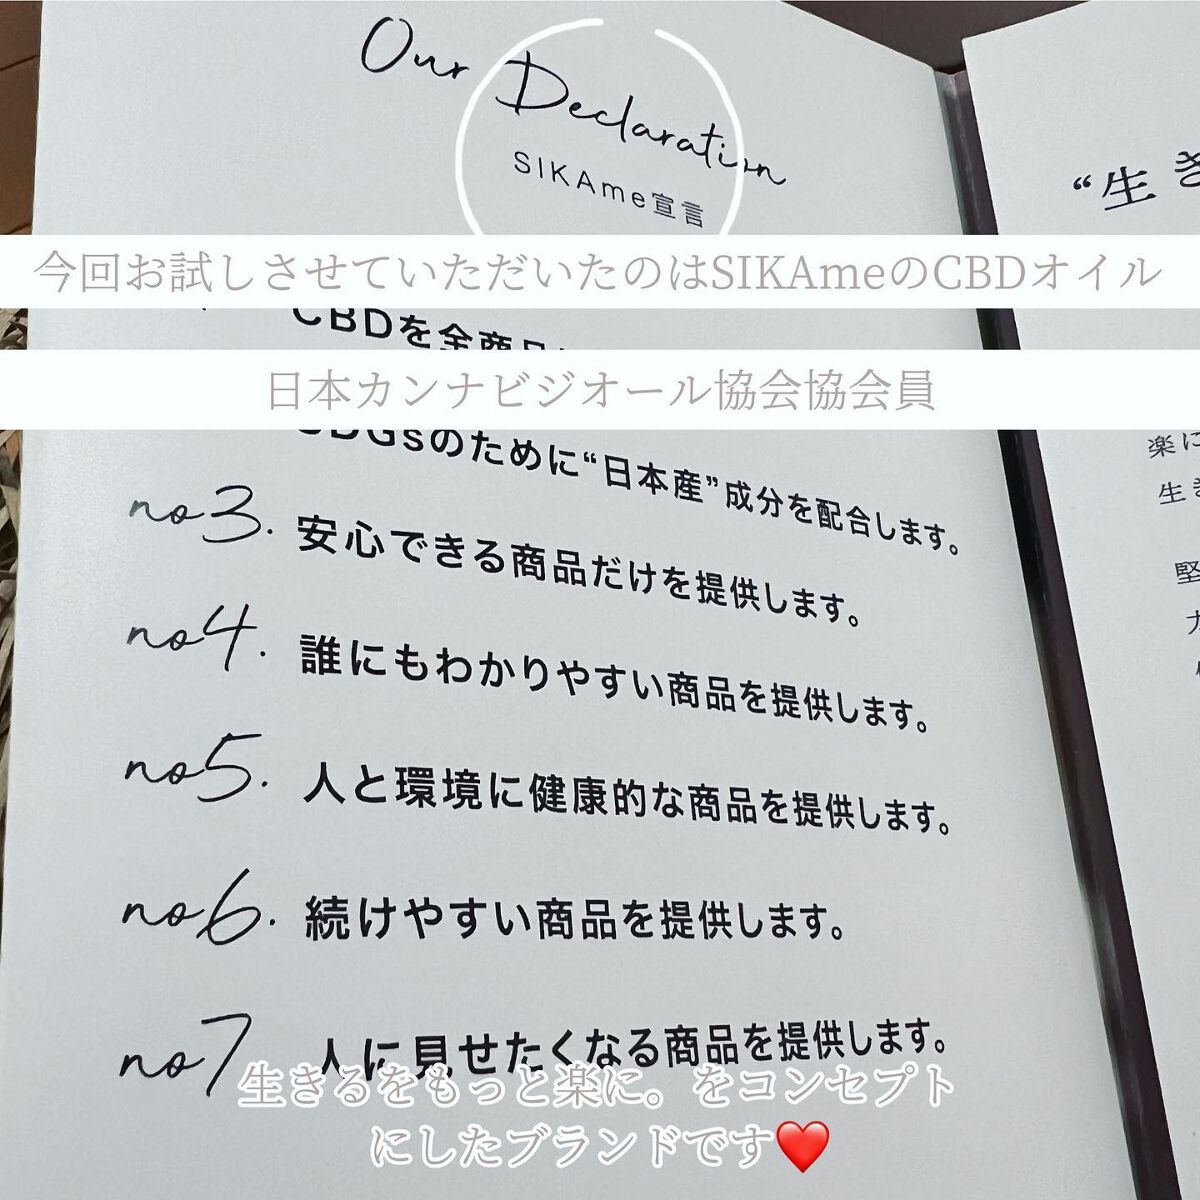 Our Declaration
SIKAme宣言
今回お試しさせていただいたのはSIKAmeのCBDオイル
CBDを全商品に
日本カンナビジオール協会協会員
SDGsのために“日本産”成分を配合します。
no3. 安心できる商品だけを提供します。
no4. 誰にもわかりやすい商品を提供します。
no5. 人と環境に健康的な商品を提供します。
no6. 続けやすい商品を提供します。
no7 人に見せたくなる商品を提供します。
生きるをもっと楽に。をコンセプト
にしたブランドです❤️
“生き
楽に
生き
堅